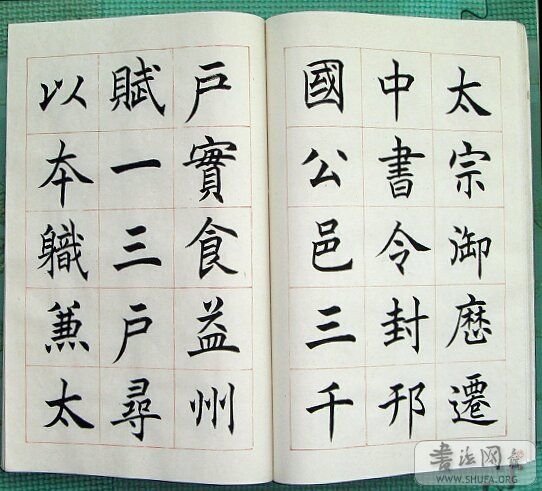 太宗御歷遷
中書令封邗
國公邑三千
戸實食益州
賦一三戸尋
以本職兼太
書法网
WWW.SHUFA.ORG